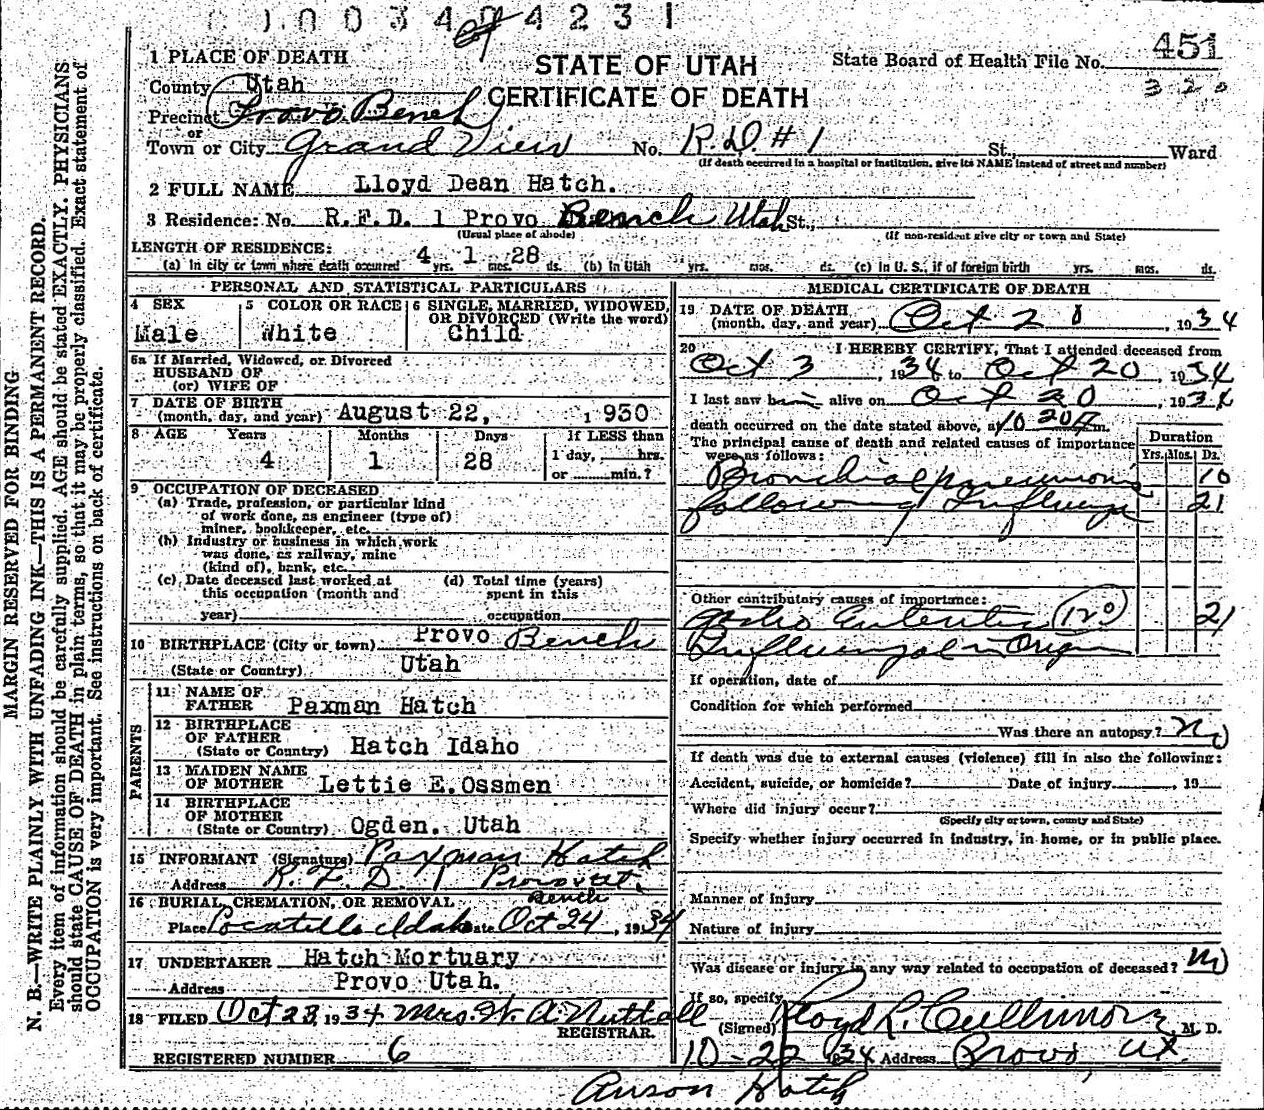 0 0 0 3 4 0 4 2 3 1
451
320
1 PLACE OF DEATH
STATE OF UTAH
CERTIFICATE OF DEATH
State Board of Health File No.
County Utah
Precinct Provo Bench
or
Town or City Grand View No. R.D. # 1 St., Ward
(If death occurred in a hospital or institution, give its NAME instead of street and number)
2 FULL NAME Lloyd Dean Hatch.
3 Residence: No. R.F.D. 1 Provo Bench Utah St.,
(Usual place of abode) (If non-resident give city or town and State)
LENGTH OF RESIDENCE:
(a) In city or town where death occurred 4 yrs. 1 mos. 28 ds. (b) In Utah yrs. mos. ds. (c) In U. S., if of foreign birth yrs. mos. ds.
PERSONAL AND STATISTICAL PARTICULARS
4 SEX
Male
5 COLOR OR RACE
White
6 SINGLE, MARRIED, WIDOWED, OR DIVORCED (Write the word)
Child
6a If Married, Widowed, or Divorced
HUSBAND OF
(or) WIFE OF
7 DATE OF BIRTH
(month, day, and year) August 22, 1930
8 AGE Years Months Days If LESS than
4 1 28 1 day, hrs.
or min.?
9 OCCUPATION OF DECEASED
(a) Trade, profession, or particular kind
of work done, as engineer (type of)
miner, bookkeeper, etc.
(b) Industry or business in which work
was done, as railway, mine
(kind of), bank, etc.
(c) Date deceased last worked at
this occupation (month and
year)
(d) Total time (years)
spent in this
occupation
10 BIRTHPLACE (City or town) Provo Bench
(State or Country) Utah
PARENTS
11 NAME OF
FATHER Paxman Hatch
12 BIRTHPLACE
OF FATHER
(State or Country) Hatch Idaho
13 MAIDEN NAME
OF MOTHER Lettie E. Ossmen
14 BIRTHPLACE
OF MOTHER
(State or Country) Ogden. Utah
15 INFORMANT (Signature) Paxman Hatch
Address R. F. D. 1 Provo Ut.
Bench
16 BURIAL, CREMATION, OR REMOVAL
Place Pocatello Idaho Date Oct 24, 1934
17 UNDERTAKER Hatch Mortuary
Address Provo Utah.
18 FILED Oct 23, 1934 Mrs. H. A. Nuttall
REGISTRAR.
REGISTERED NUMBER 6
MEDICAL CERTIFICATE OF DEATH
19 DATE OF DEATH
(month, day, and year) Oct 20, 1934
20 I HEREBY CERTIFY, That I attended deceased from
Oct 3, 1934 to Oct 20, 1934
I last saw him alive on Oct 20, 1934
death occurred on the date stated above, at 10 20 m.
The principal cause of death and related causes of importance
were as follows:
Duration
Yrs. Mos. Ds.
Bronchial pneumonia 10
following Influenza 21
Other contributory causes of importance:
Gastro Enteritis (120) 21
Influenzal in Origin
If operation, date of
Condition for which performed
Was there an autopsy? No
If death was due to external causes (violence) fill in also the following:
Accident, suicide, or homicide? Date of injury , 19
Where did injury occur?
(Specify city or town, county and State)
Specify whether injury occurred in industry, in home, or in public place.
Manner of injury
Nature of injury
Was disease or injury in any way related to occupation of deceased? No
If so, specify
(Signed) Lloyd L. Cullimore, M. D.
10-22 1934 Address Provo, Ut.
Anson Hatch
MARGIN RESERVED FOR BINDING
N. B.—WRITE PLAINLY WITH UNFADING INK—THIS IS A PERMANENT RECORD.
Every item of information should be carefully supplied. AGE should be stated EXACTLY. PHYSICIANS
should state CAUSE OF DEATH in plain terms, so that it may be properly classified. Exact statement of
OCCUPATION is very important. See instructions on back of certificate.